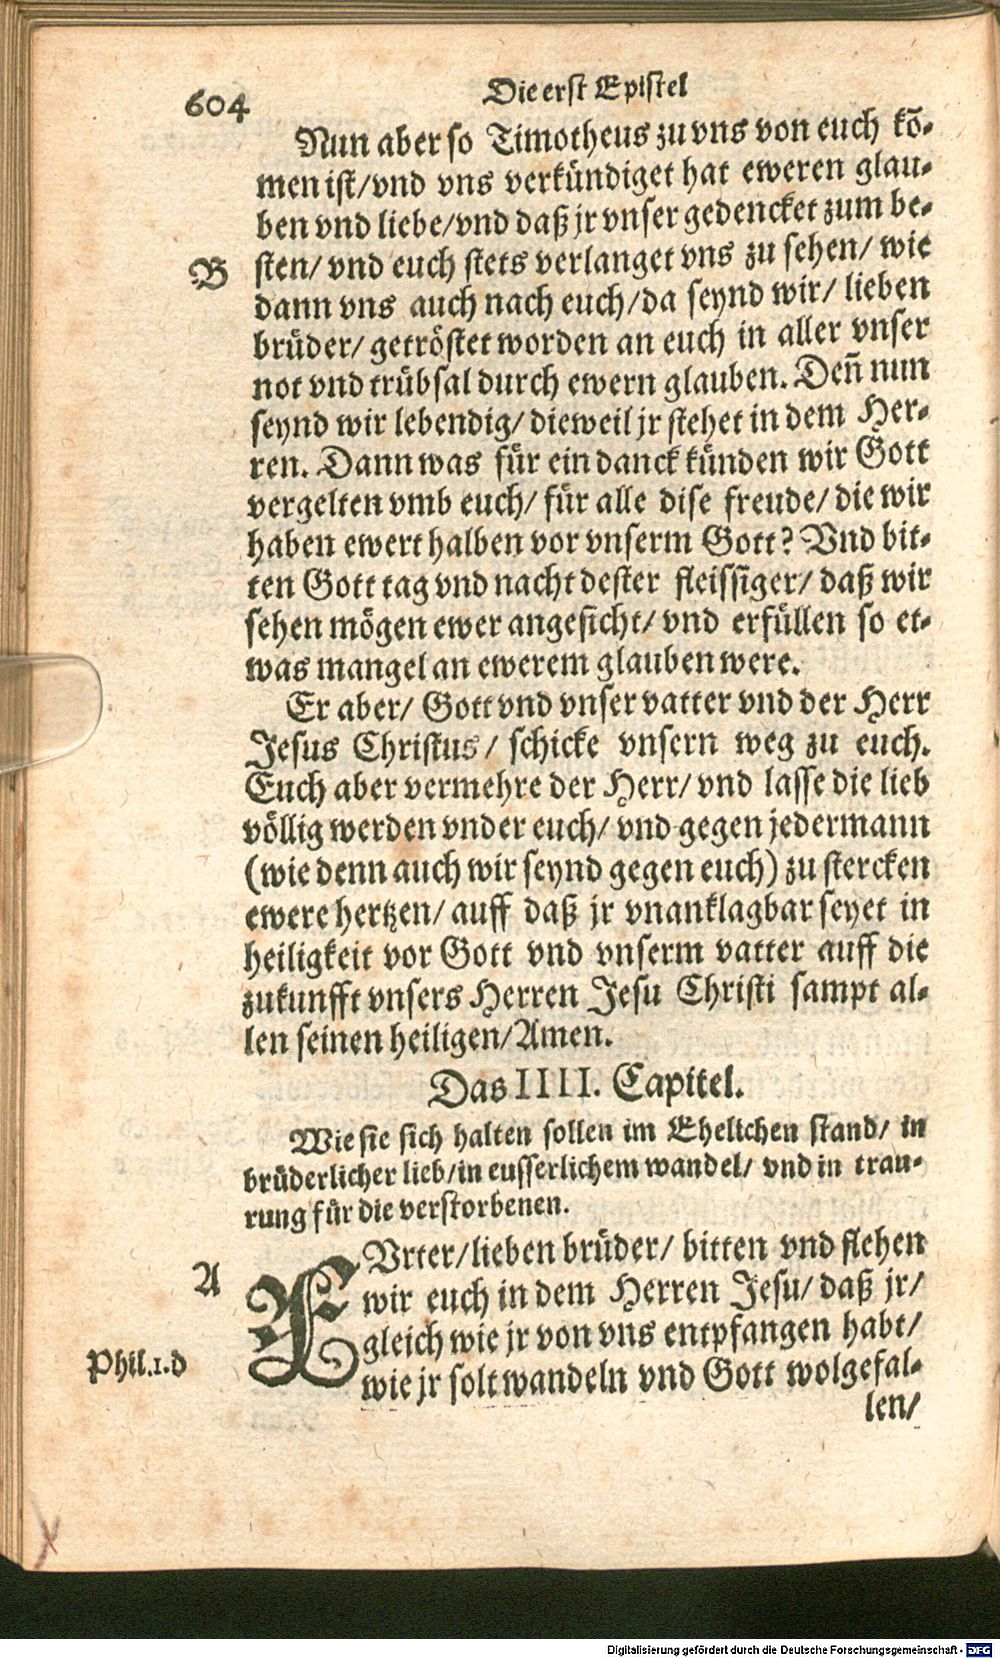 604
Die erst Epistel
Nun aber so Timotheus zu vns von euch kō-
men ist/vnd vns verkündiget hat eweren glau-
ben vnd liebe/vnd daß jr vnser gedencket zum be-
B
sten/ vnd euch stets verlanget vns zu sehen/ wie
dann vns auch nach euch/da seynd wir/ lieben
brüder/ getröstet worden an euch in aller vnser
not vnd trübsal durch ewern glauben. Deñ nun
seynd wir lebendig/ dieweil jr stehet in dem Her-
ren. Dann was für ein danck künden wir Gott
vergelten vmb euch/ für alle dise freude/ die wir
haben ewert halben vor vnserm Gott? Vnd bit-
ten Gott tag vnd nacht dester fleissiger/ daß wir
sehen mögen ewer angesicht/ vnd erfüllen so et-
was mangel an ewerem glauben were.
Er aber/ Gott vnd vnser vatter vnd der Herr
Jesus Christus/ schicke vnsern weg zu euch.
Euch aber vermehre der Herr/ vnd lasse die lieb
völlig werden vnder euch/ vnd gegen jedermann
(wie denn auch wir seynd gegen euch) zu stercken
ewere hertzen/ auff daß jr vnanklagbar seyet in
heiligkeit vor Gott vnd vnserm vatter auff die
zukunfft vnsers Herren Jesu Christi sampt al-
len seinen heiligen/Amen.
Das IIII. Capitel.
Wie sie sich halten sollen im Ehelichen stand/ in
brüderlicher lieb/in eusserlichem wandel/ vnd in trau-
rung für die verstorbenen.
A
FVrter/lieben brüder/ bitten vnd flehen
wir euch in dem Herren Jesu/ daß jr/
gleich wie jr von vns entpfangen habt/
Phil.1.d
wie jr solt wandeln vnd Gott wolgefal-
len/
Digitalisierung gefördert durch die Deutsche Forschungsgemeinschaft - DFG